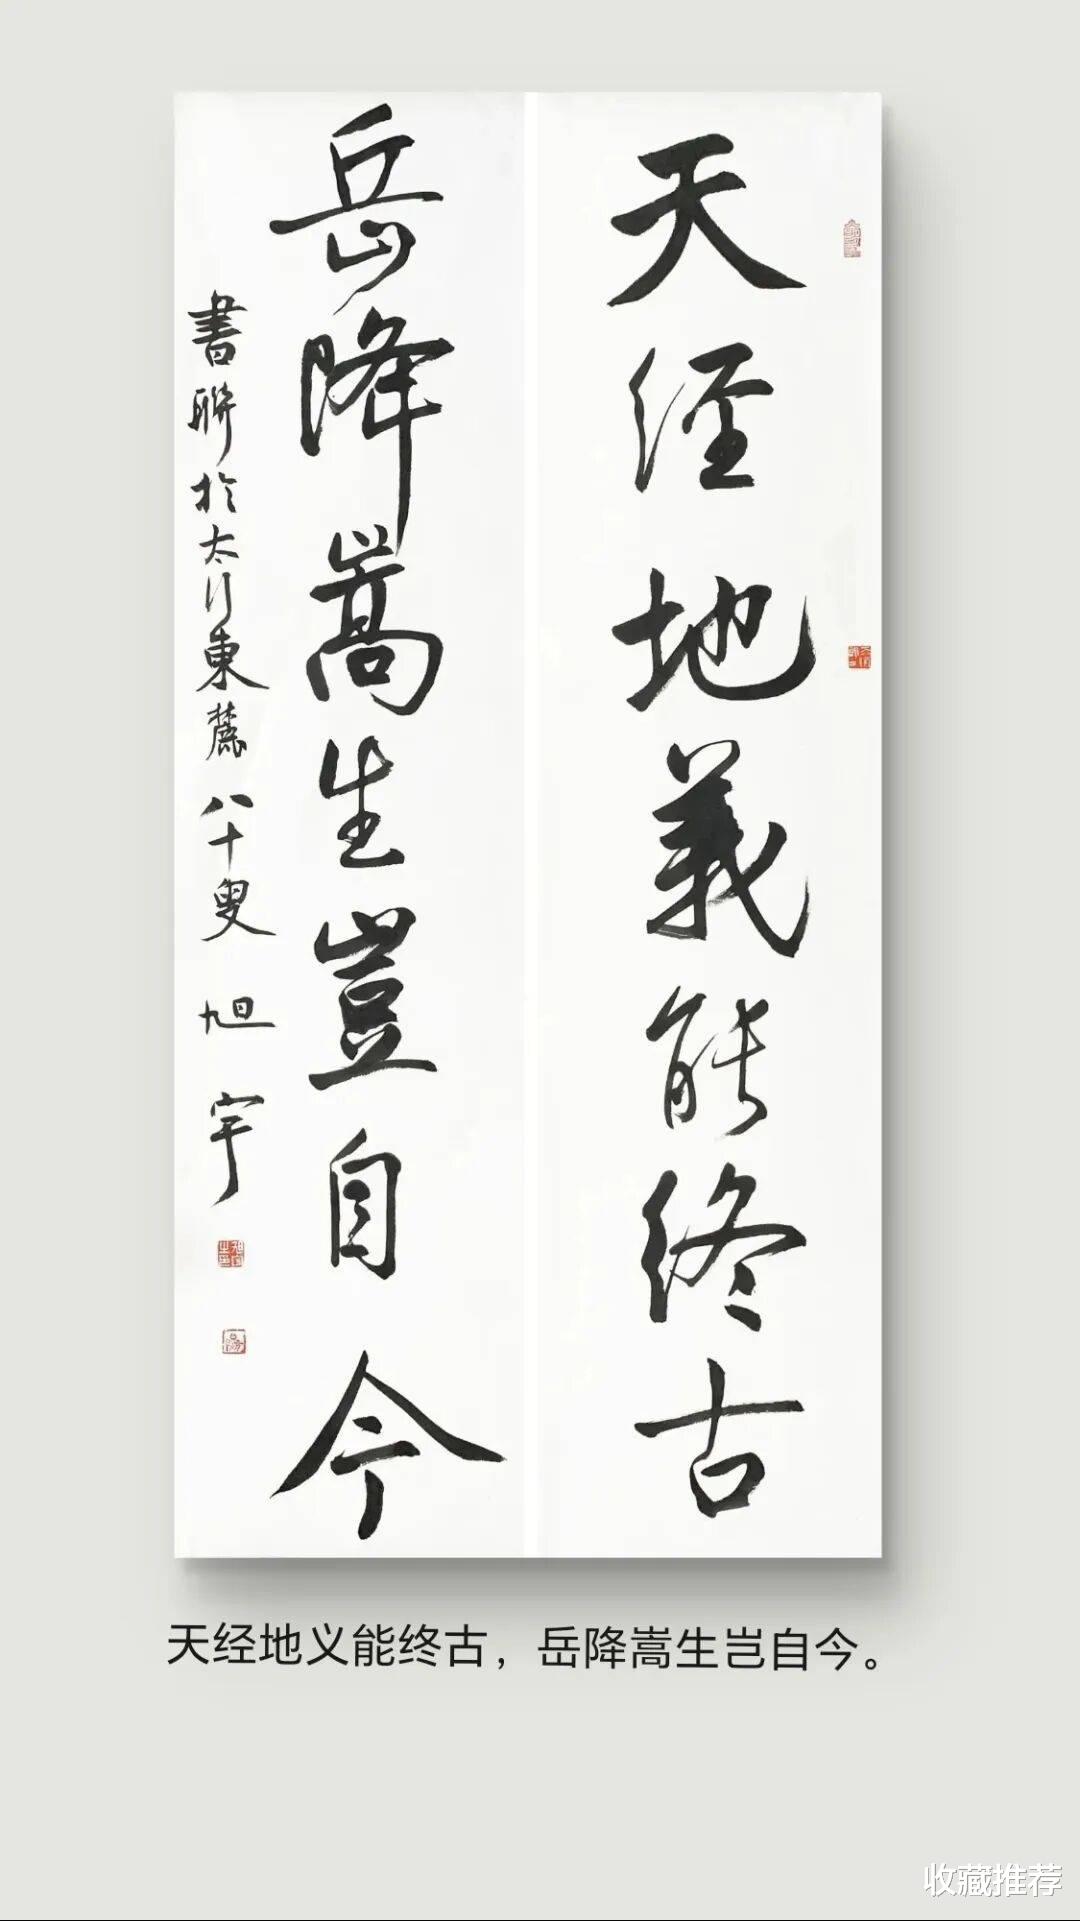 天经地義能终古
岳降嵩生豈自今
書聯於太行東麓 八十叟 旭宇
天经地义能终古，岳降嵩生岂自今。
收藏推荐